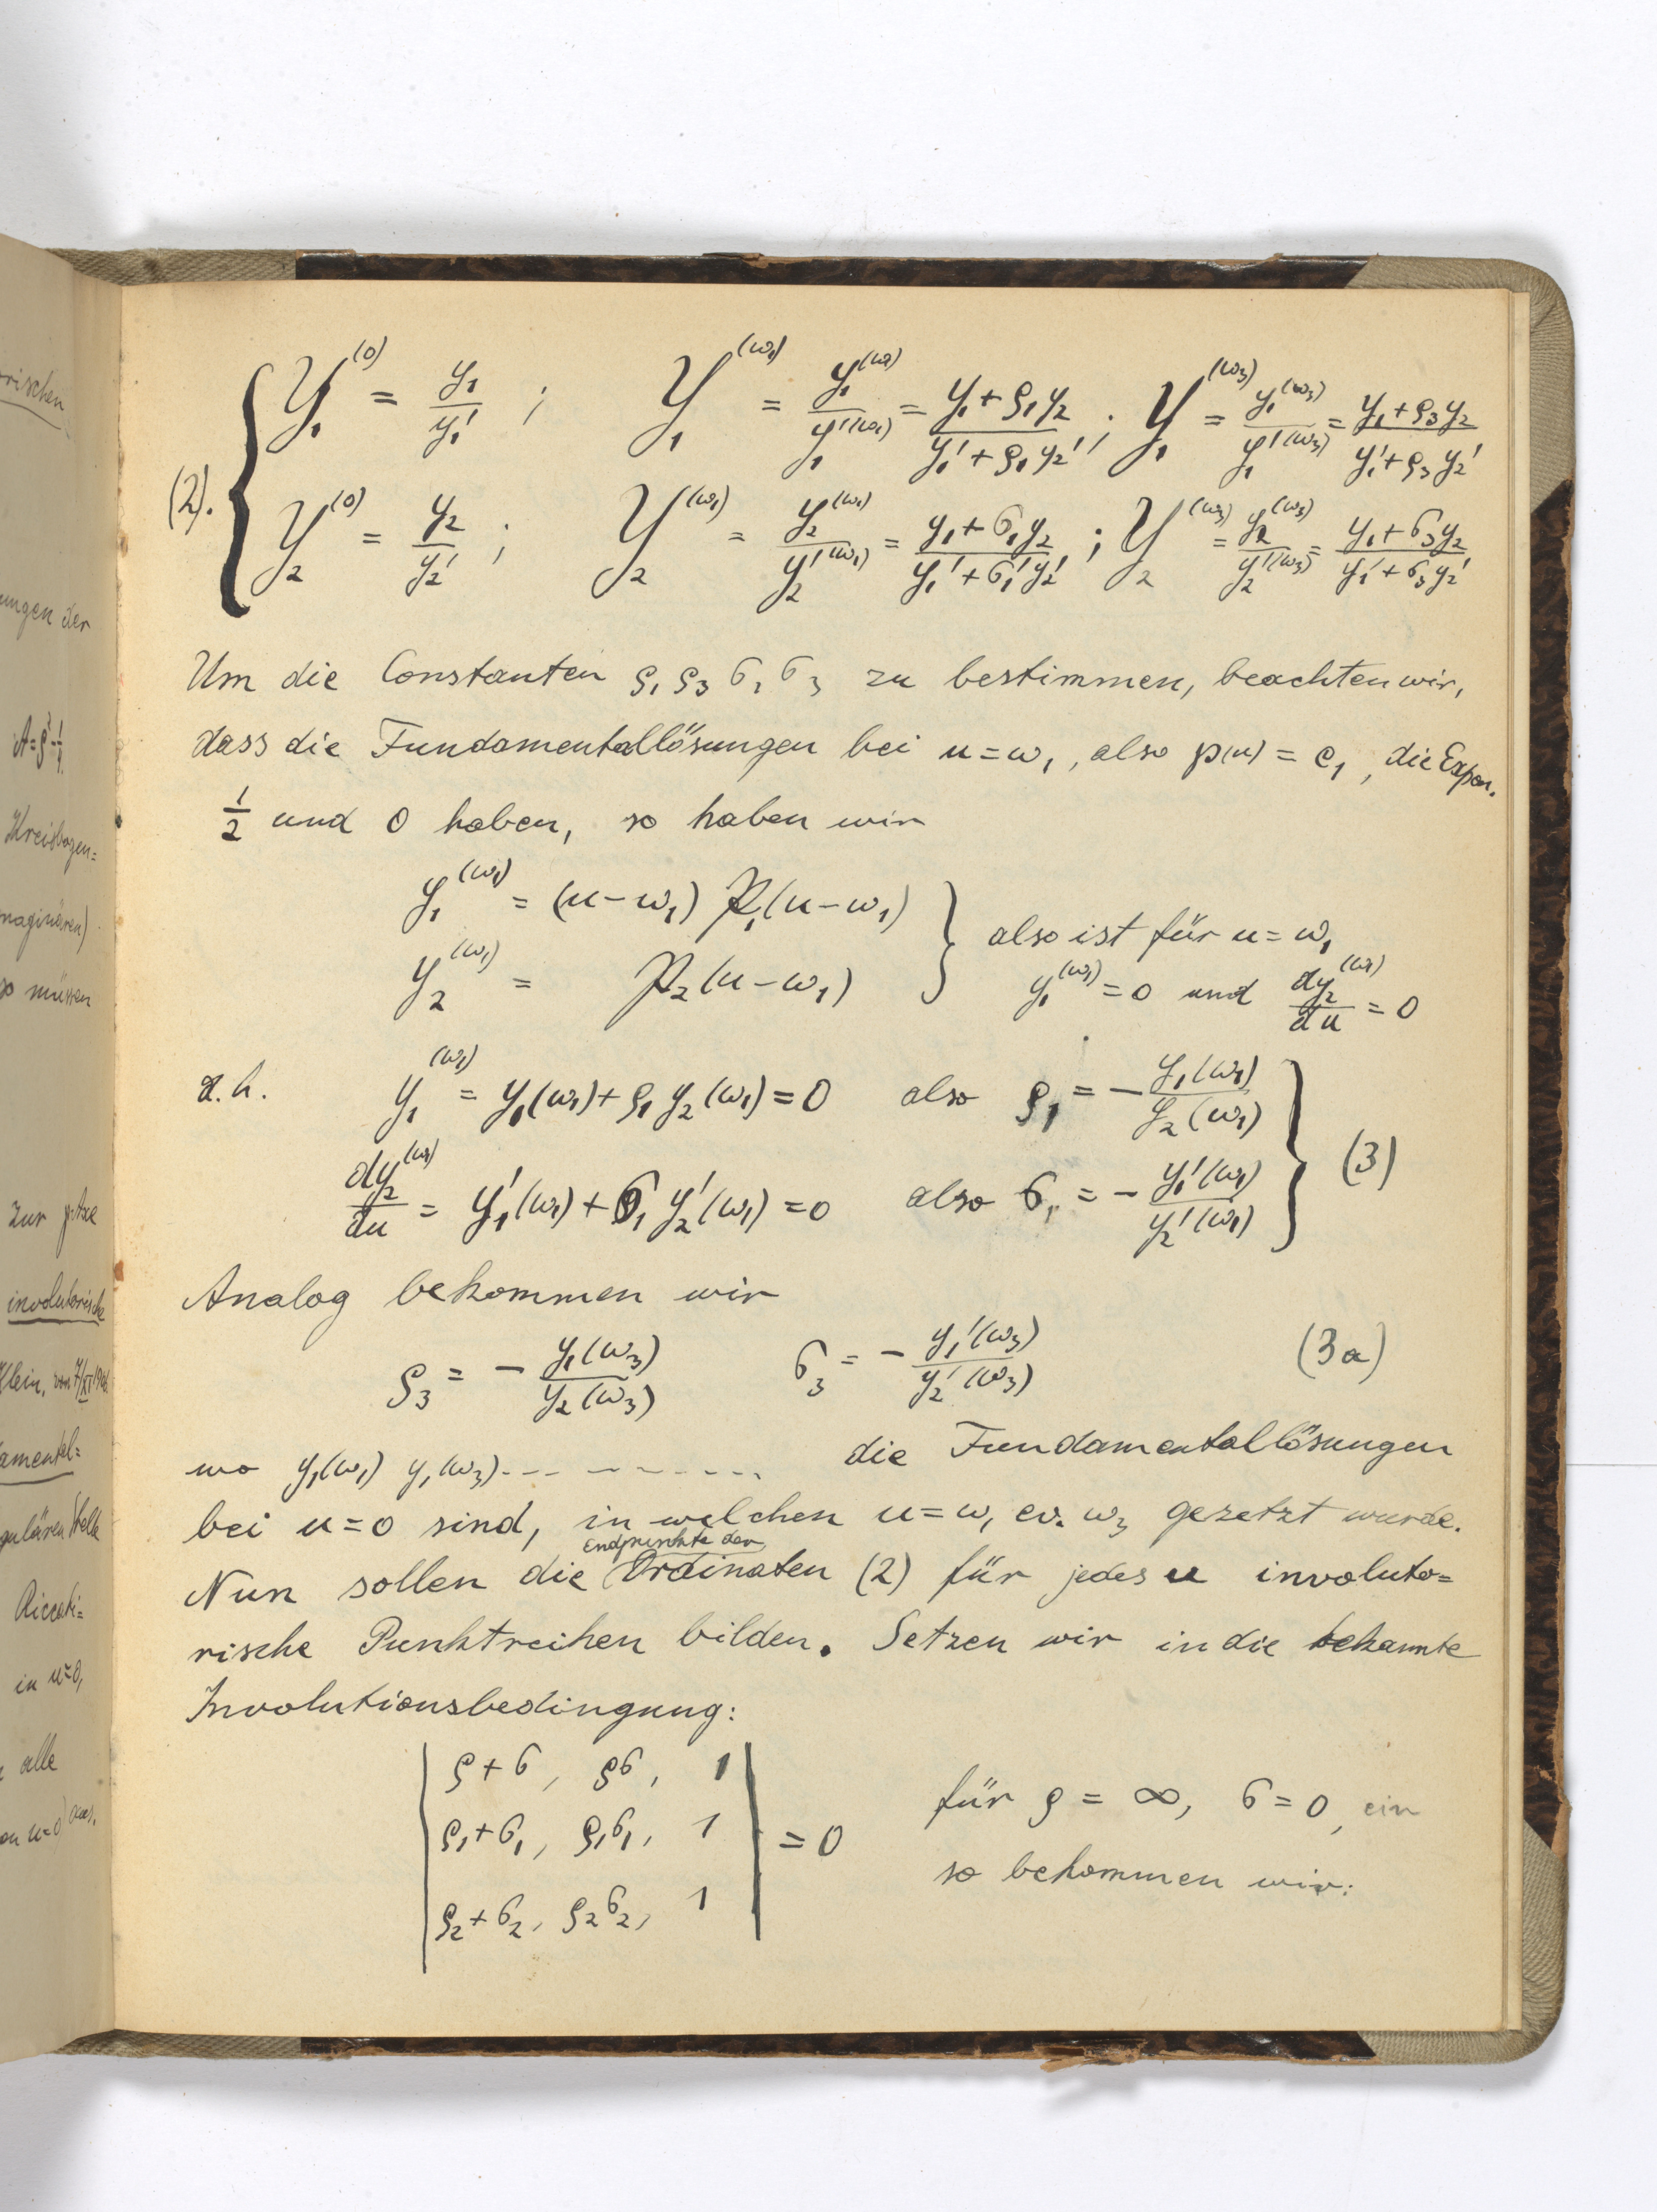 rischen
ungen der
Kreisbogen=
maginären)
so müssen
zur
involutorische
Klein, von
amental=
gulären Stelle
Riccati=
in u=0,
alle
(2). Y₁⁽⁰⁾ = y₁/y₁' ; Y₁^(ω₁) = y₁^(ω₁)/y₁'^(ω₁) = (y₁+ρ₁y₂)/(y₁'+ρ₁y₂') ; Y₁^(ω₃) = y₁^(ω₃)/y₁'^(ω₃) = (y₁+ρ₃y₂)/(y₁'+ρ₃y₂')
Y₂⁽⁰⁾ = y₂/y₂' ; Y₂^(ω₁) = y₂^(ω₁)/y₂'^(ω₁) = (y₁+σ₁y₂)/(y₁'+σ₁'y₂') ; Y₂^(ω₃) = y₂^(ω₃)/y₂'^(ω₃) = (y₁+σ₃y₂)/(y₁'+σ₃y₂')
Um die Constanten ρ₁ ρ₃ σ₁ σ₃ zu bestimmen, beachten wir,
dass die Fundamentallösungen bei u=ω₁, also ℘(u) = e₁, die Expon.
1/2 und 0 haben, so haben wir
y₁^(ω₁) = (u-ω₁) P₁(u-ω₁) } also ist für u=ω₁
y₂^(ω₁) = P₂(u-ω₁) y₁^(ω₁) = 0 und dy₂^(ω₁)/du = 0
d.h. y₁^(ω₁) = y₁(ω₁)+ρ₁y₂(ω₁) = 0 also ρ₁ = -y₁(ω₁)/y₂(ω₁)
dy₂^(ω₁)/du = y₁'(ω₁)+σ₁y₂'(ω₁) = 0 also σ₁ = -y₁'(ω₁)/y₂'(ω₁) } (3)
Analog bekommen wir
ρ₃ = -y₁(ω₃)/y₂(ω₃) σ₃ = -y₁'(ω₃)/y₂'(ω₃) (3a)
wo y₁(ω₁) y₁(ω₃)......... die Fundamentallösungen
bei u=0 sind, in welchen u=ω₁ ev. ω₃ gesetzt wurde.
Endpunkte der
Nun sollen die Ordinaten (2) für jedes u involuto=
rische Punktreihen bilden. Setzen wir in die bekannte
Involutionsbedingung:
| ρ+σ, ρσ, 1 |
| ρ₁+σ₁, ρ₁σ₁, 1 | = 0 für ρ = ∞, σ=0, ein
| ρ₂+σ₂, ρ₂σ₂, 1 | so bekommen wir: